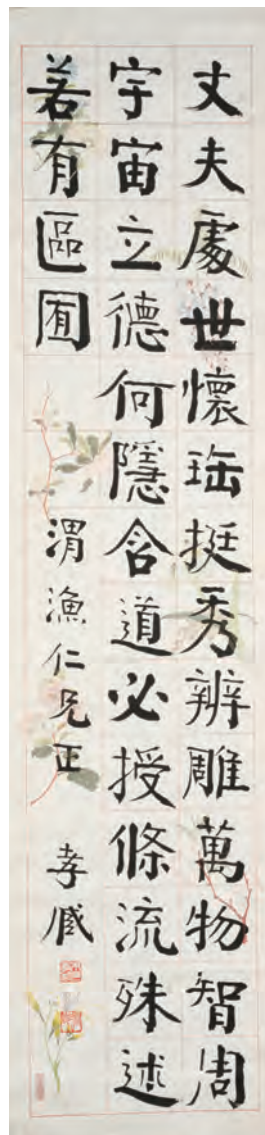 丈夫處世懷珤挺秀辨雕萬物智周
宇宙立德何隱含道必授條流殊述
若有區囿
渭漁仁兄正
孝臧